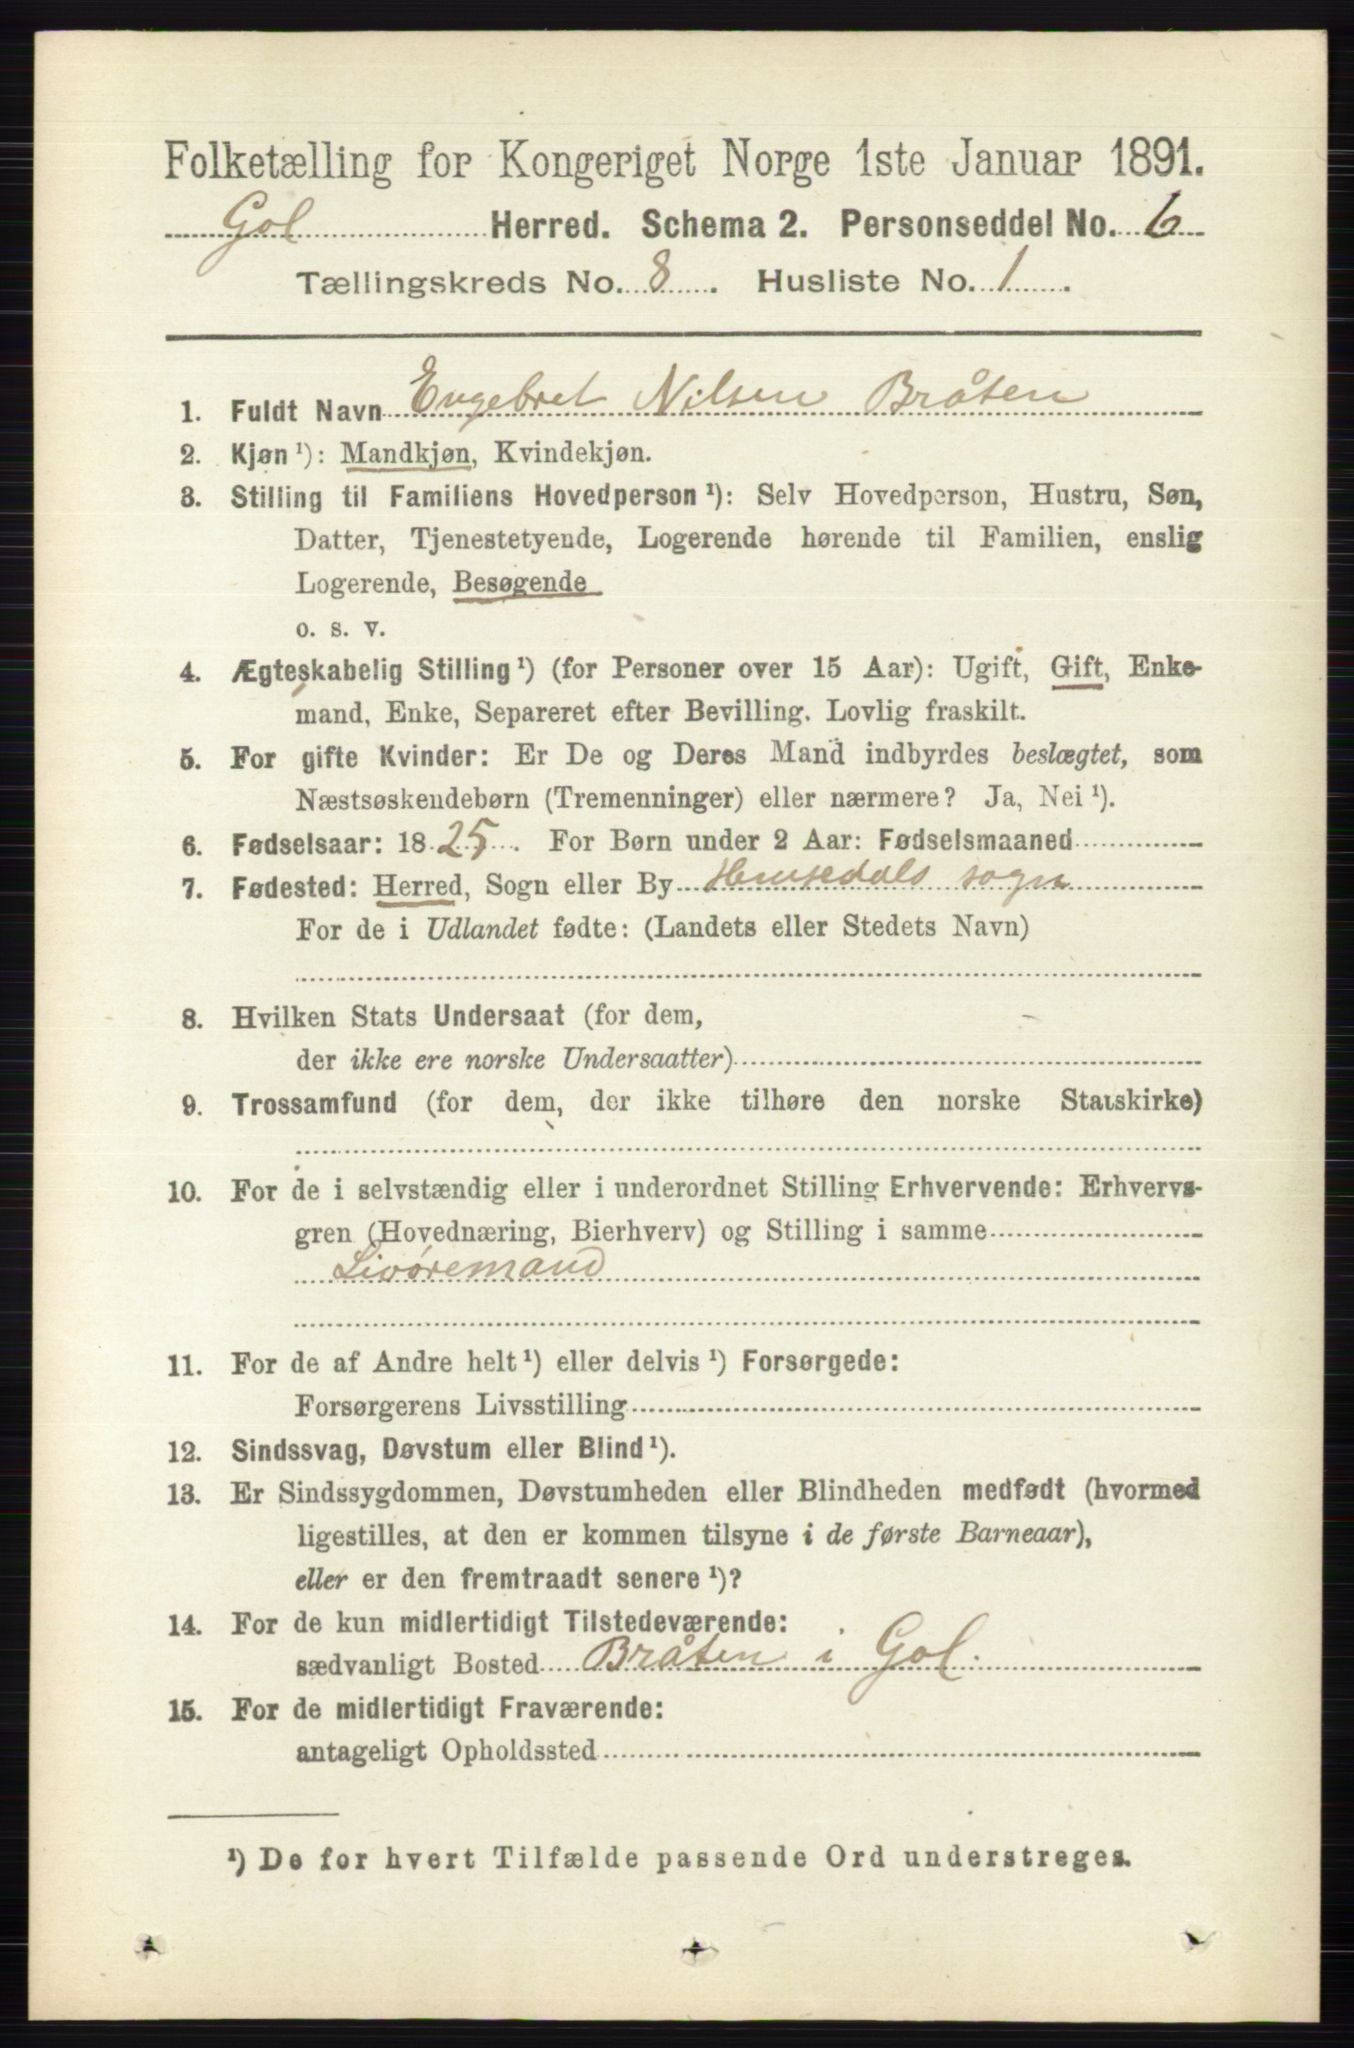 Folketælling for Kongeriget Norge 1ste Januar 1891.
Gol Herred. Schema 2. Personseddel No. 6
Tællingskreds No. 8. Husliste No. 1.
1. Fuldt Navn Engebret Nilsen Bråten
2. Kjøn ¹): Mandkjøn, Kvindekjøn.
3. Stilling til Familiens Hovedperson ¹): Selv Hovedperson, Hustru, Søn,
Datter, Tjenestetyende, Logerende hørende til Familien, enslig
Logerende, Besøgende
o. s. v.
4. Ægteskabelig Stilling ¹) (for Personer over 15 Aar): Ugift, Gift, Enke-
mand, Enke, Separeret efter Bevilling. Lovlig fraskilt.
5. For gifte Kvinder: Er De og Deres Mand indbyrdes beslægtet, som
Næstsøskendebørn (Tremenninger) eller nærmere? Ja, Nei ¹).
6. Fødselsaar: 1825. For Børn under 2 Aar: Fødselsmaaned
7. Fødested: Herred, Sogn eller By Hemsedals sogn
For de i Udlandet fødte: (Landets eller Stedets Navn)
8. Hvilken Stats Undersaat (for dem,
der ikke ere norske Undersaatter)
9. Trossamfund (for dem, der ikke tilhøre den norske Statskirke)
10. For de i selvstændig eller i underordnet Stilling Erhvervende: Erhvervs-
gren (Hovednæring, Bierhverv) og Stilling i samme
Livøremand
11. For de af Andre helt ¹) eller delvis ¹) Forsørgede:
Forsørgerens Livsstilling
12. Sindssvag, Døvstum eller Blind ¹).
13. Er Sindssygdommen, Døvstumheden eller Blindheden medfødt (hvormed
ligestilles, at den er kommen tilsyne i de første Barneaar),
eller er den fremtraadt senere ¹)?
14. For de kun midlertidigt Tilstedeværende:
sædvanligt Bosted Bråten i Gol.
15. For de midlertidigt Fraværende:
antageligt Opholdssted
¹) De for hvert Tilfælde passende Ord understreges.